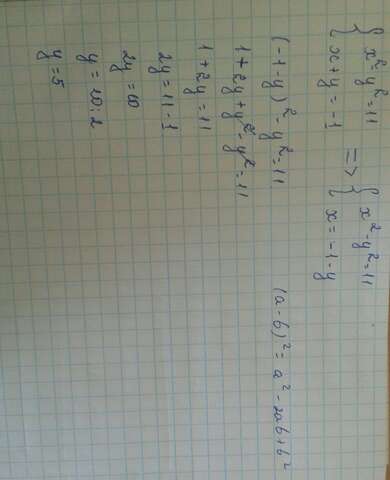 { x² - y² = 11
{ x + y = -1 => { x² - y² = 11
{ x = -1 - y
(-1-y)² - y² = 11 (a-b)² = a² - 2ab + b²
1 + 2y + y² - y² = 11
1 + 2y = 11
2y = 11 - 1
2y = 10
y = 10:2
y = 5